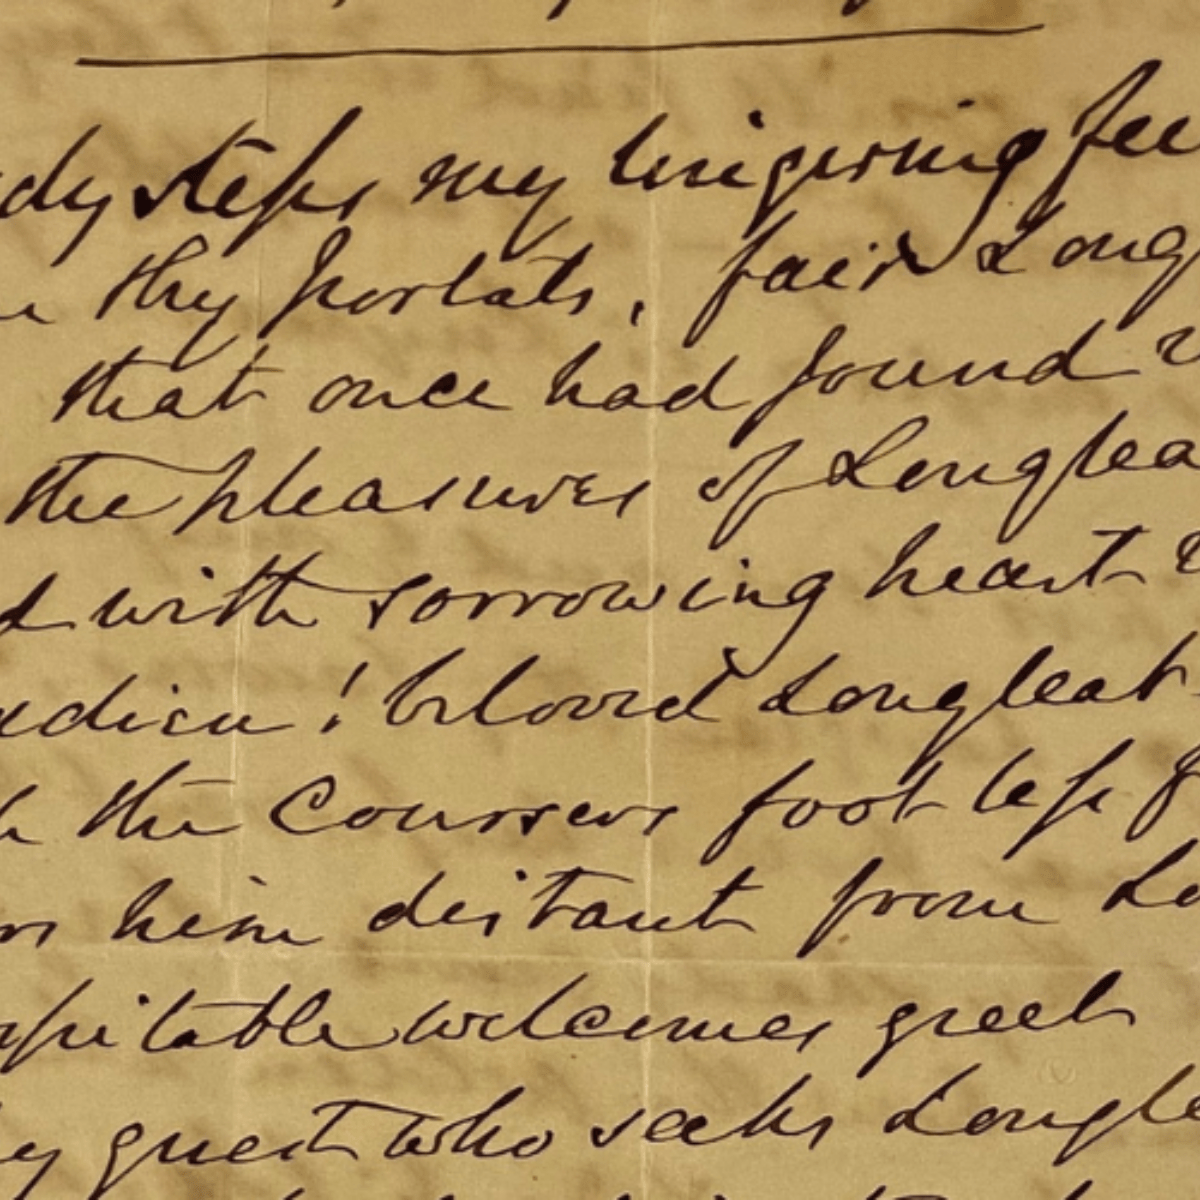 dy steps my lingering fee
thy portals, fair Long
that once had found
the pleasures of Longlea
with sorrowing heart
adieu! beloved Longleat
the Coursers foot less
him distant from Lo
spitable welcomes greet
guest who seeks Longle